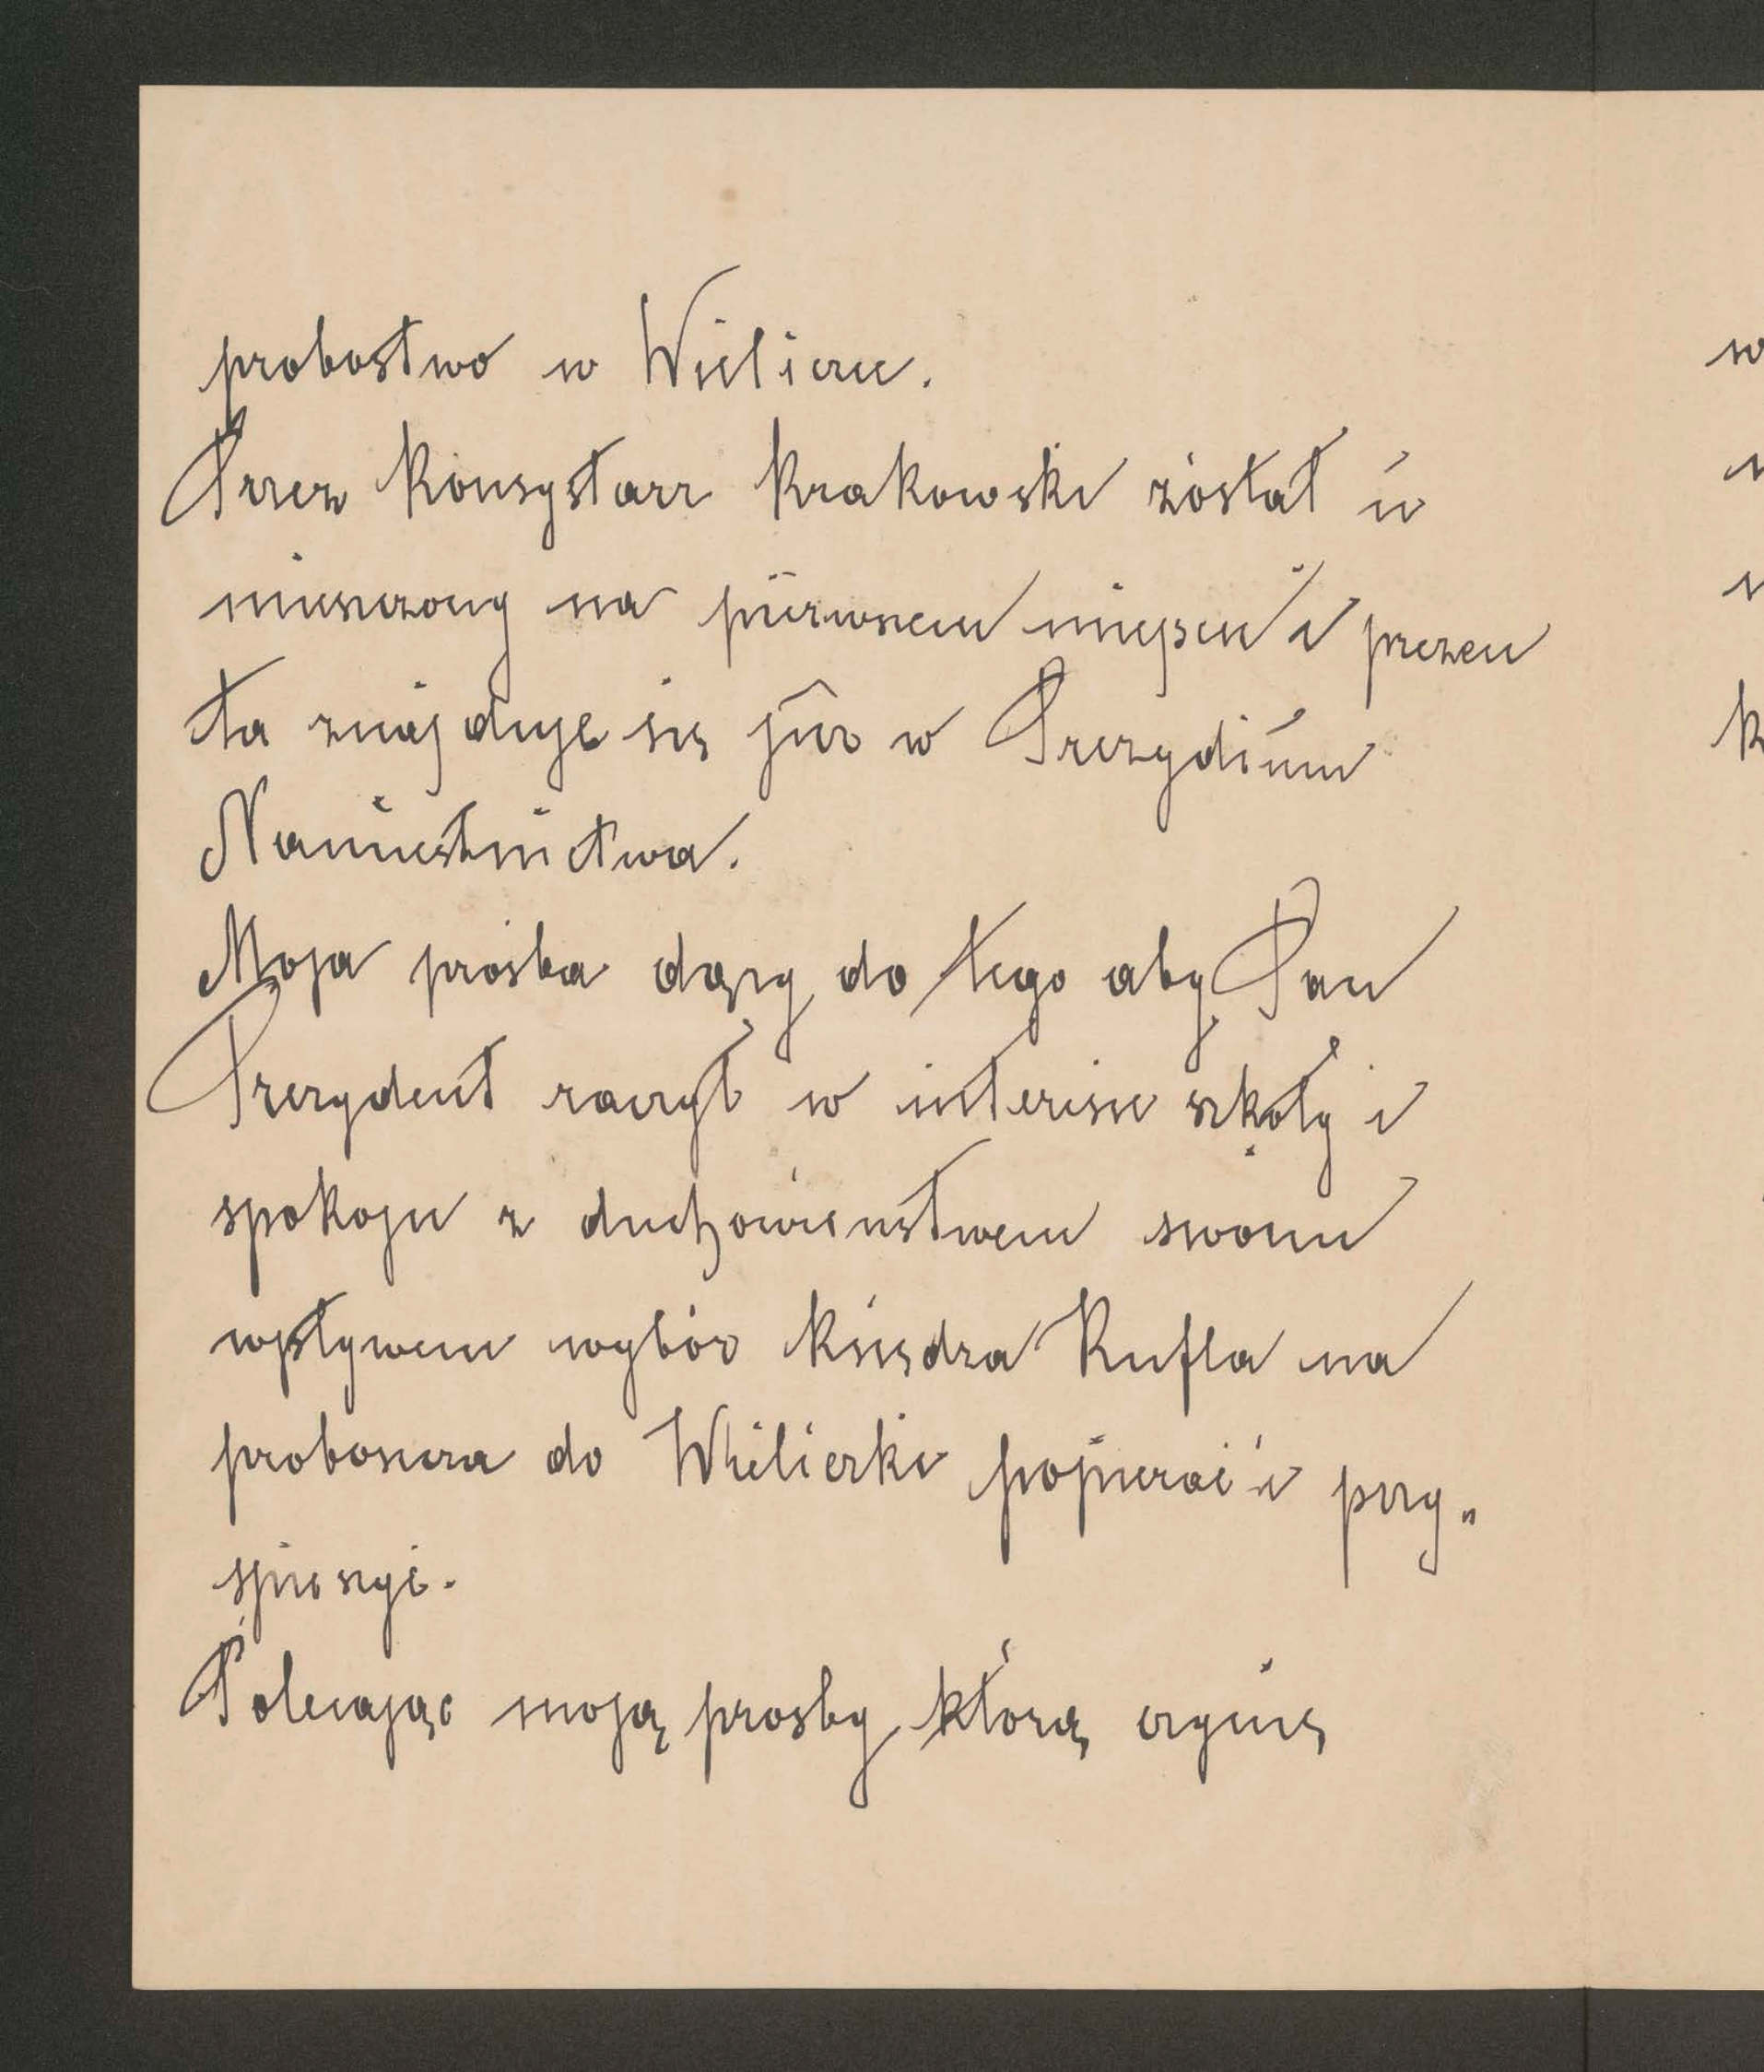 probostwo w Wieliczce.
Przez Konsystarz Krakowski został u
mieszczony na pierwszem miejscu i prezen
ta znajduje się już w Prezydium
Namiestnictwa.
Moja prośba dąży do tego aby Pan
Prezydent raczył w interesie szkoły i
spokoju z duchowieństwem swoim
wpływem wybór księdza Kufla na
proboszcza do Wieliczki popierać i przy„
spieszyć.
Polecając moją prosby którą czynię